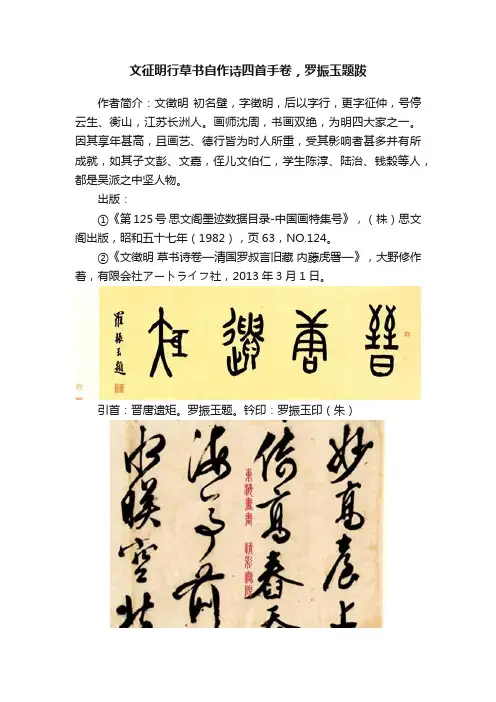 文征明行草书自作诗四首手卷，罗振玉题跋
作者简介：文徵明 初名璧，字徵明，后以字行，更字征仲，号停
云生、衡山，江苏长洲人。画师沈周，书画双绝，为明四大家之一。
因其享年甚高，且画艺、德行皆为时人所重，受其影响者甚多并有所
成就，如其子文彭、文嘉，侄儿文伯仁，学生陈淳、陆治、钱榖等人，
都是吴派之中坚人物。
出版：
①《第125号 思文阁墨迹数据目录-中国画特集号》，（株）思文
阁出版，昭和五十七年（1982），页63，NO.124。
②《文徵明 草书诗卷—清国罗叔言旧藏 内藤虎署—》，大野修作
著，有限会社アートライフ社，2013年3月1日。
晉唐遺矩
羅振玉題
引首：晋唐遗矩。罗振玉题。钤印：罗振玉印（朱）
妙高臺上
倚高春天
海亭前
水映空北